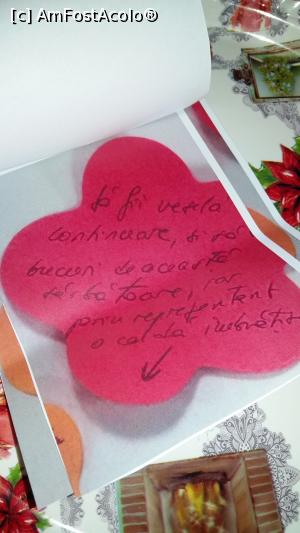 [c] AmFostAcolo®
să fii vesela
continuare, si să
bucuri de această
sărbătoare, iar
prin reprezentant
o caldă îmbrățiș